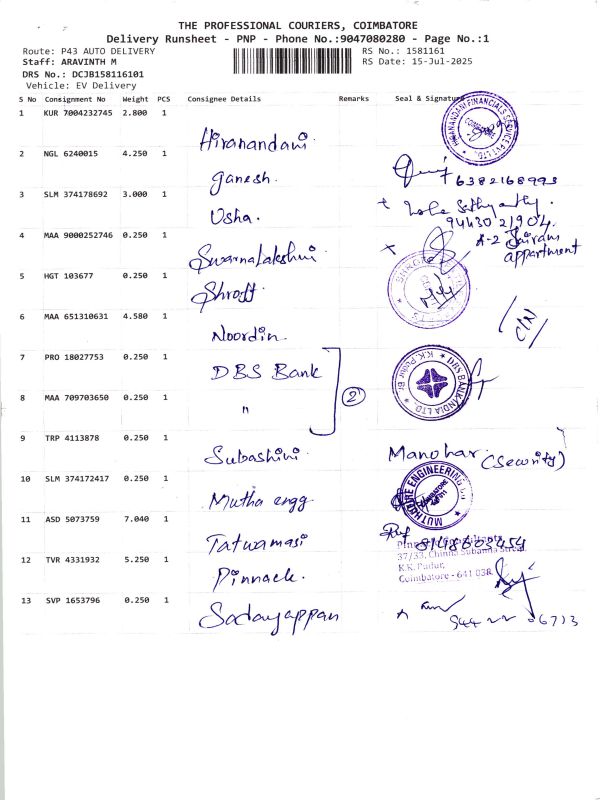 THE PROFESSIONAL COURIERS, COIMBATORE
Delivery Runsheet - PNP - Phone No.:9047080280 - Page No.:1
Route: P43 AUTO DELIVERY
RS No.: 1581161
Staff: ARAVINTH M
RS Date: 15-Jul-2025
DRS No.: DCJB158116101
Vehicle: EV Delivery
S No Consignment No Weight PCS Consignee Details Remarks Seal & Signature
1 KUR 7004232745 2.800 1 Hiranandani
HIRANANDANI FINANCIALS SERVICE PVT LTD. COIMBATORE
2 NGL 6240015 4.250 1 Ganesh. 6382168993
3 SLM 374178692 3.000 1 Usha.
94430 21904
A-2 Sairam
appartment
4 MAA 9000252746 0.250 1 SwarnaLakshmi
5 HGT 103677 0.250 1 Shroff
6 MAA 651310631 4.580 1 Noordin C/N
7 PRO 18027753 0.250 1 DBS Bank
DBS BANK INDIA LTD. K.K. Pudur Br
8 MAA 709703650 0.250 1 " 2
9 TRP 4113878 0.250 1 Subashini Manohar (Security)
10 SLM 374172417 0.250 1 Mutha engg
ENGINEERING COIMBATORE
11 ASD 5073759 7.040 1 Tatwamasi 8148603454
12 TVR 4331932 5.250 1 Pinnacle
37/33, Chinna Subanna Street,
K.K. Pudur,
Coimbatore - 641 038.
13 SVP 1653796 0.250 1 Sadayappan